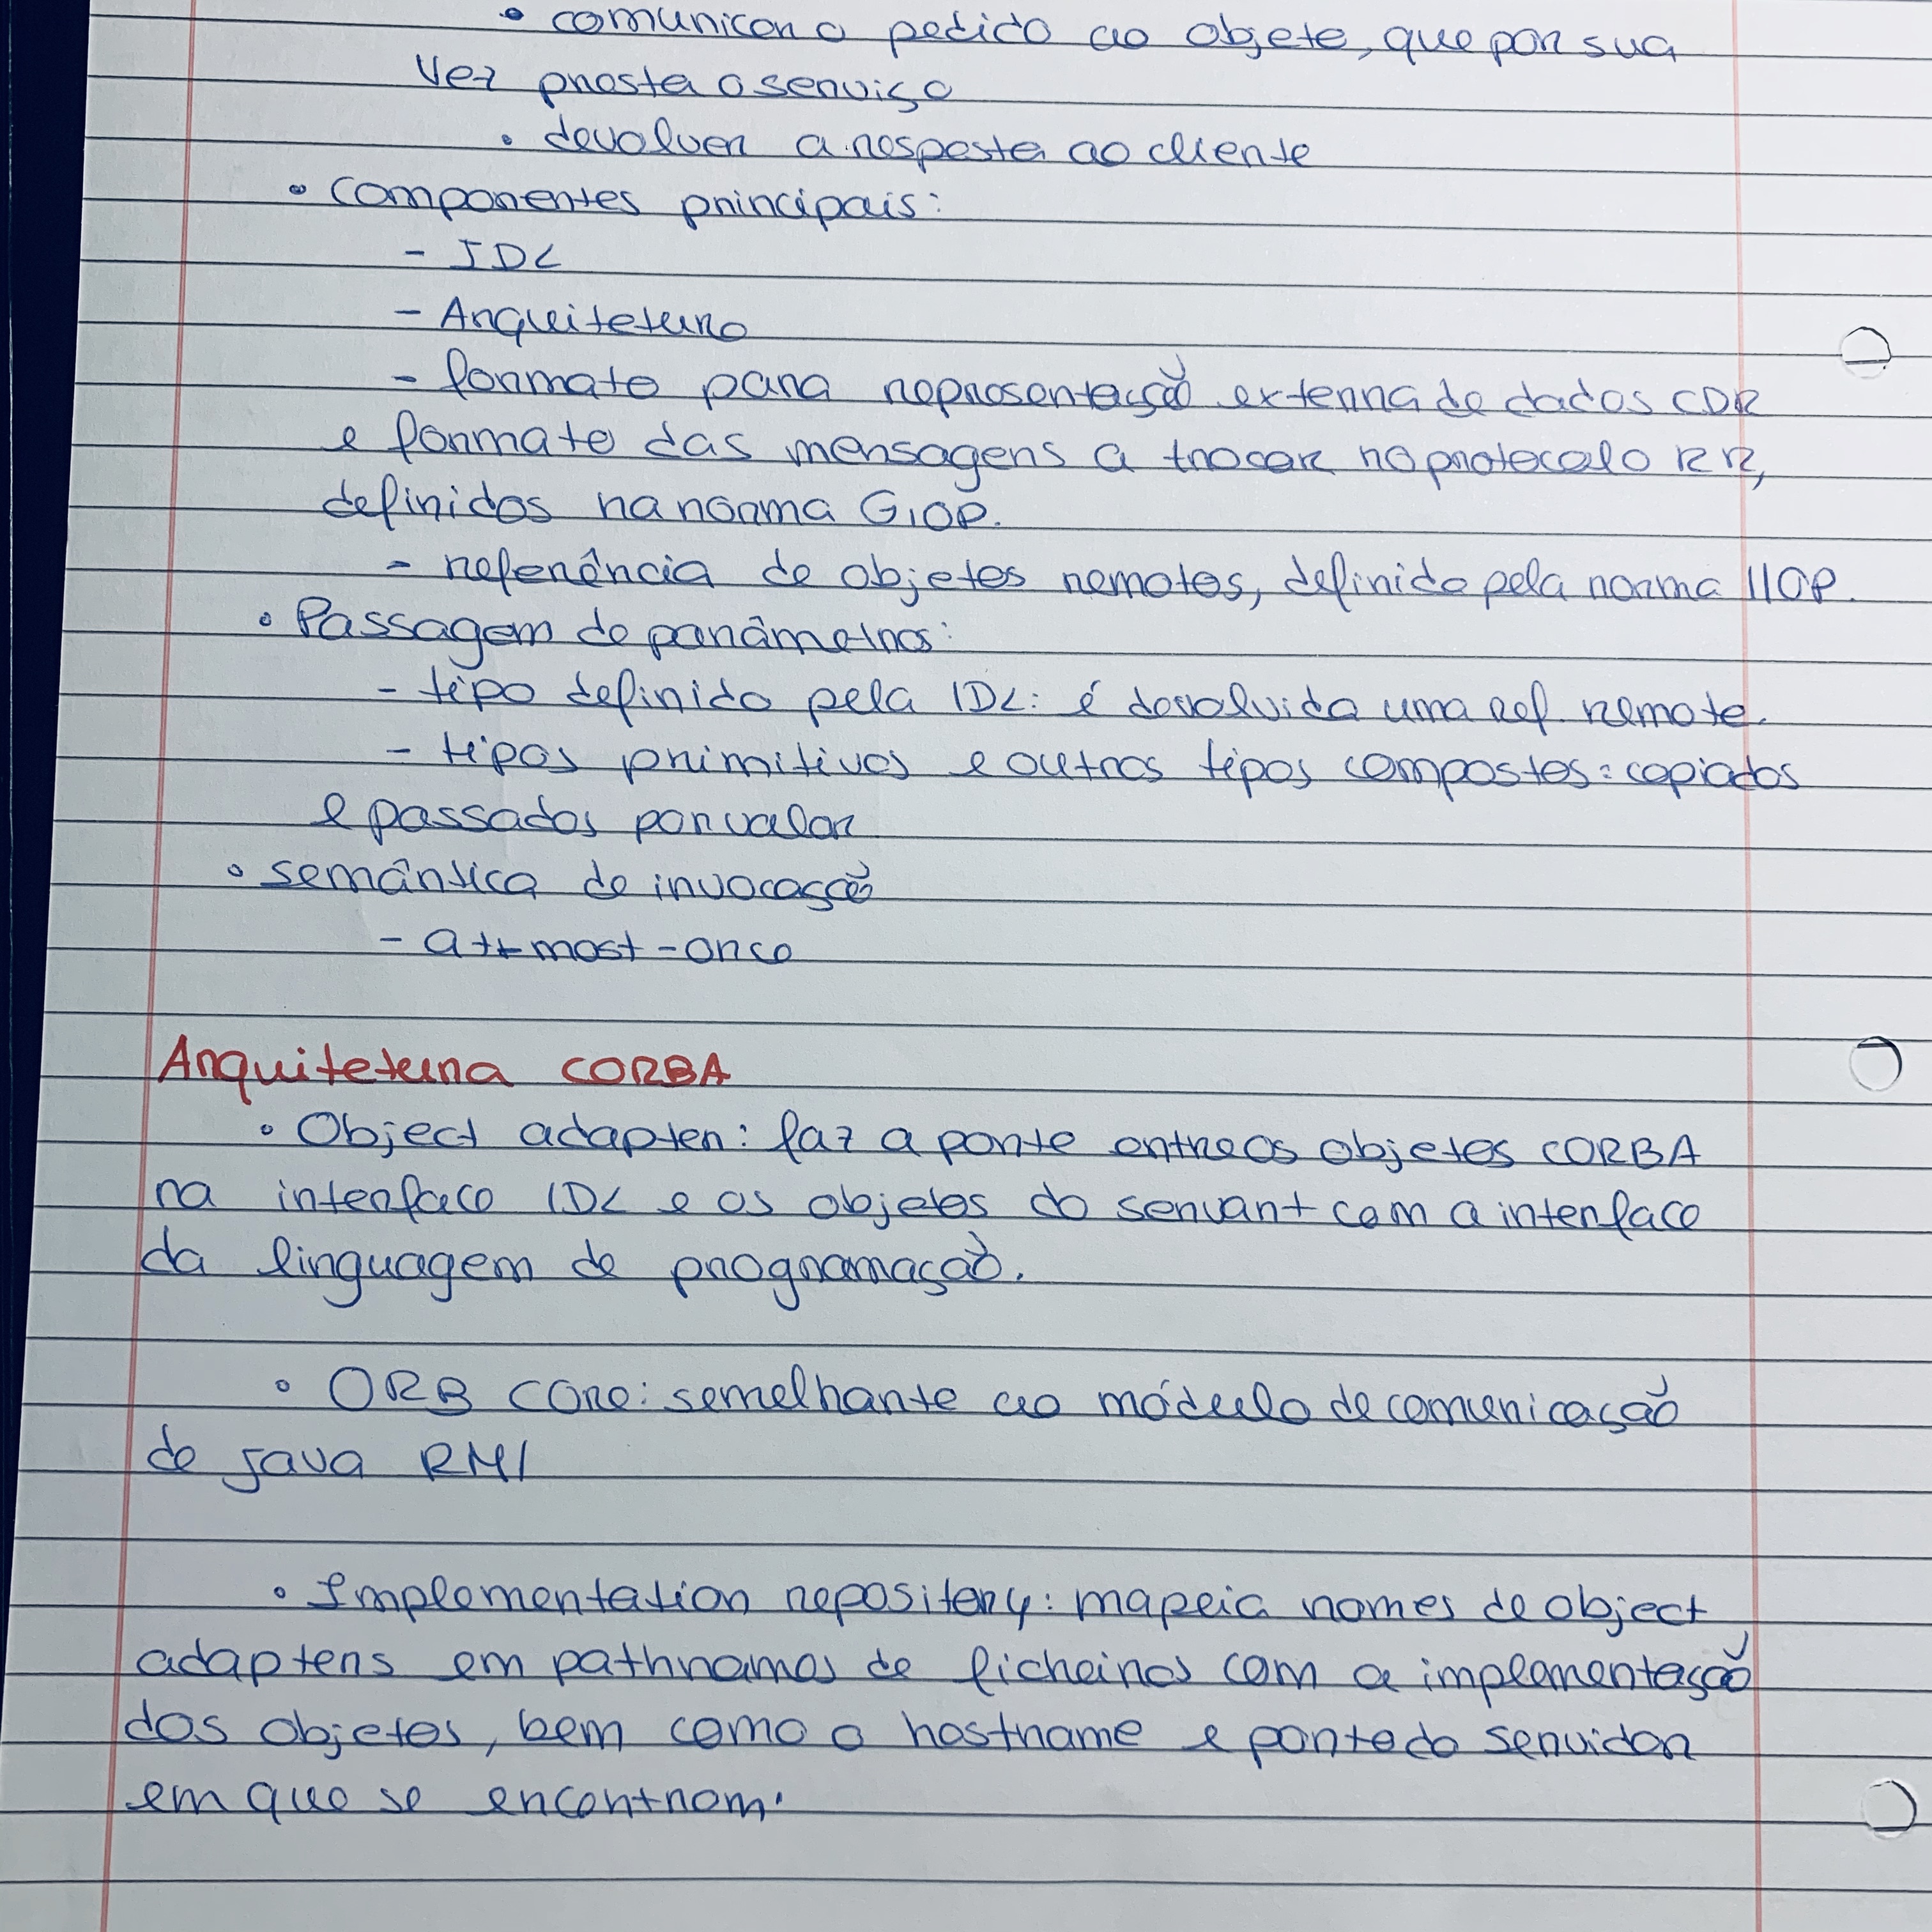 • comunicar o pedido ao objeto, que por sua
vez presta o serviço
• devolver a resposta ao cliente
• componentes principais:
- IDL
- Arquitetura
- formato para representação externa de dados CDR
e formato das mensagens a trocar no protocolo RR,
definidos na norma GIOP.
- referência de objetos remotos, definido pela norma IIOP.
• Passagem de parâmetros:
- tipo definido pela IDL: é devolvida uma ref. remota.
- tipos primitivos e outros tipos compostos: copiados
e passados por valor
• semântica de invocação
- at-most-once
Arquitetura CORBA
• Object adapter: faz a ponte entre os objetos CORBA
na interface IDL e os objetos do servant com a interface
da linguagem de programação.
• ORB core: semelhante ao módulo de comunicação
de java RMI
• Implementation repository: mapeia nomes de object
adapters em pathnames de ficheiros com a implementação
dos objetos, bem como o hostname e porto do servidor
em que se encontram.